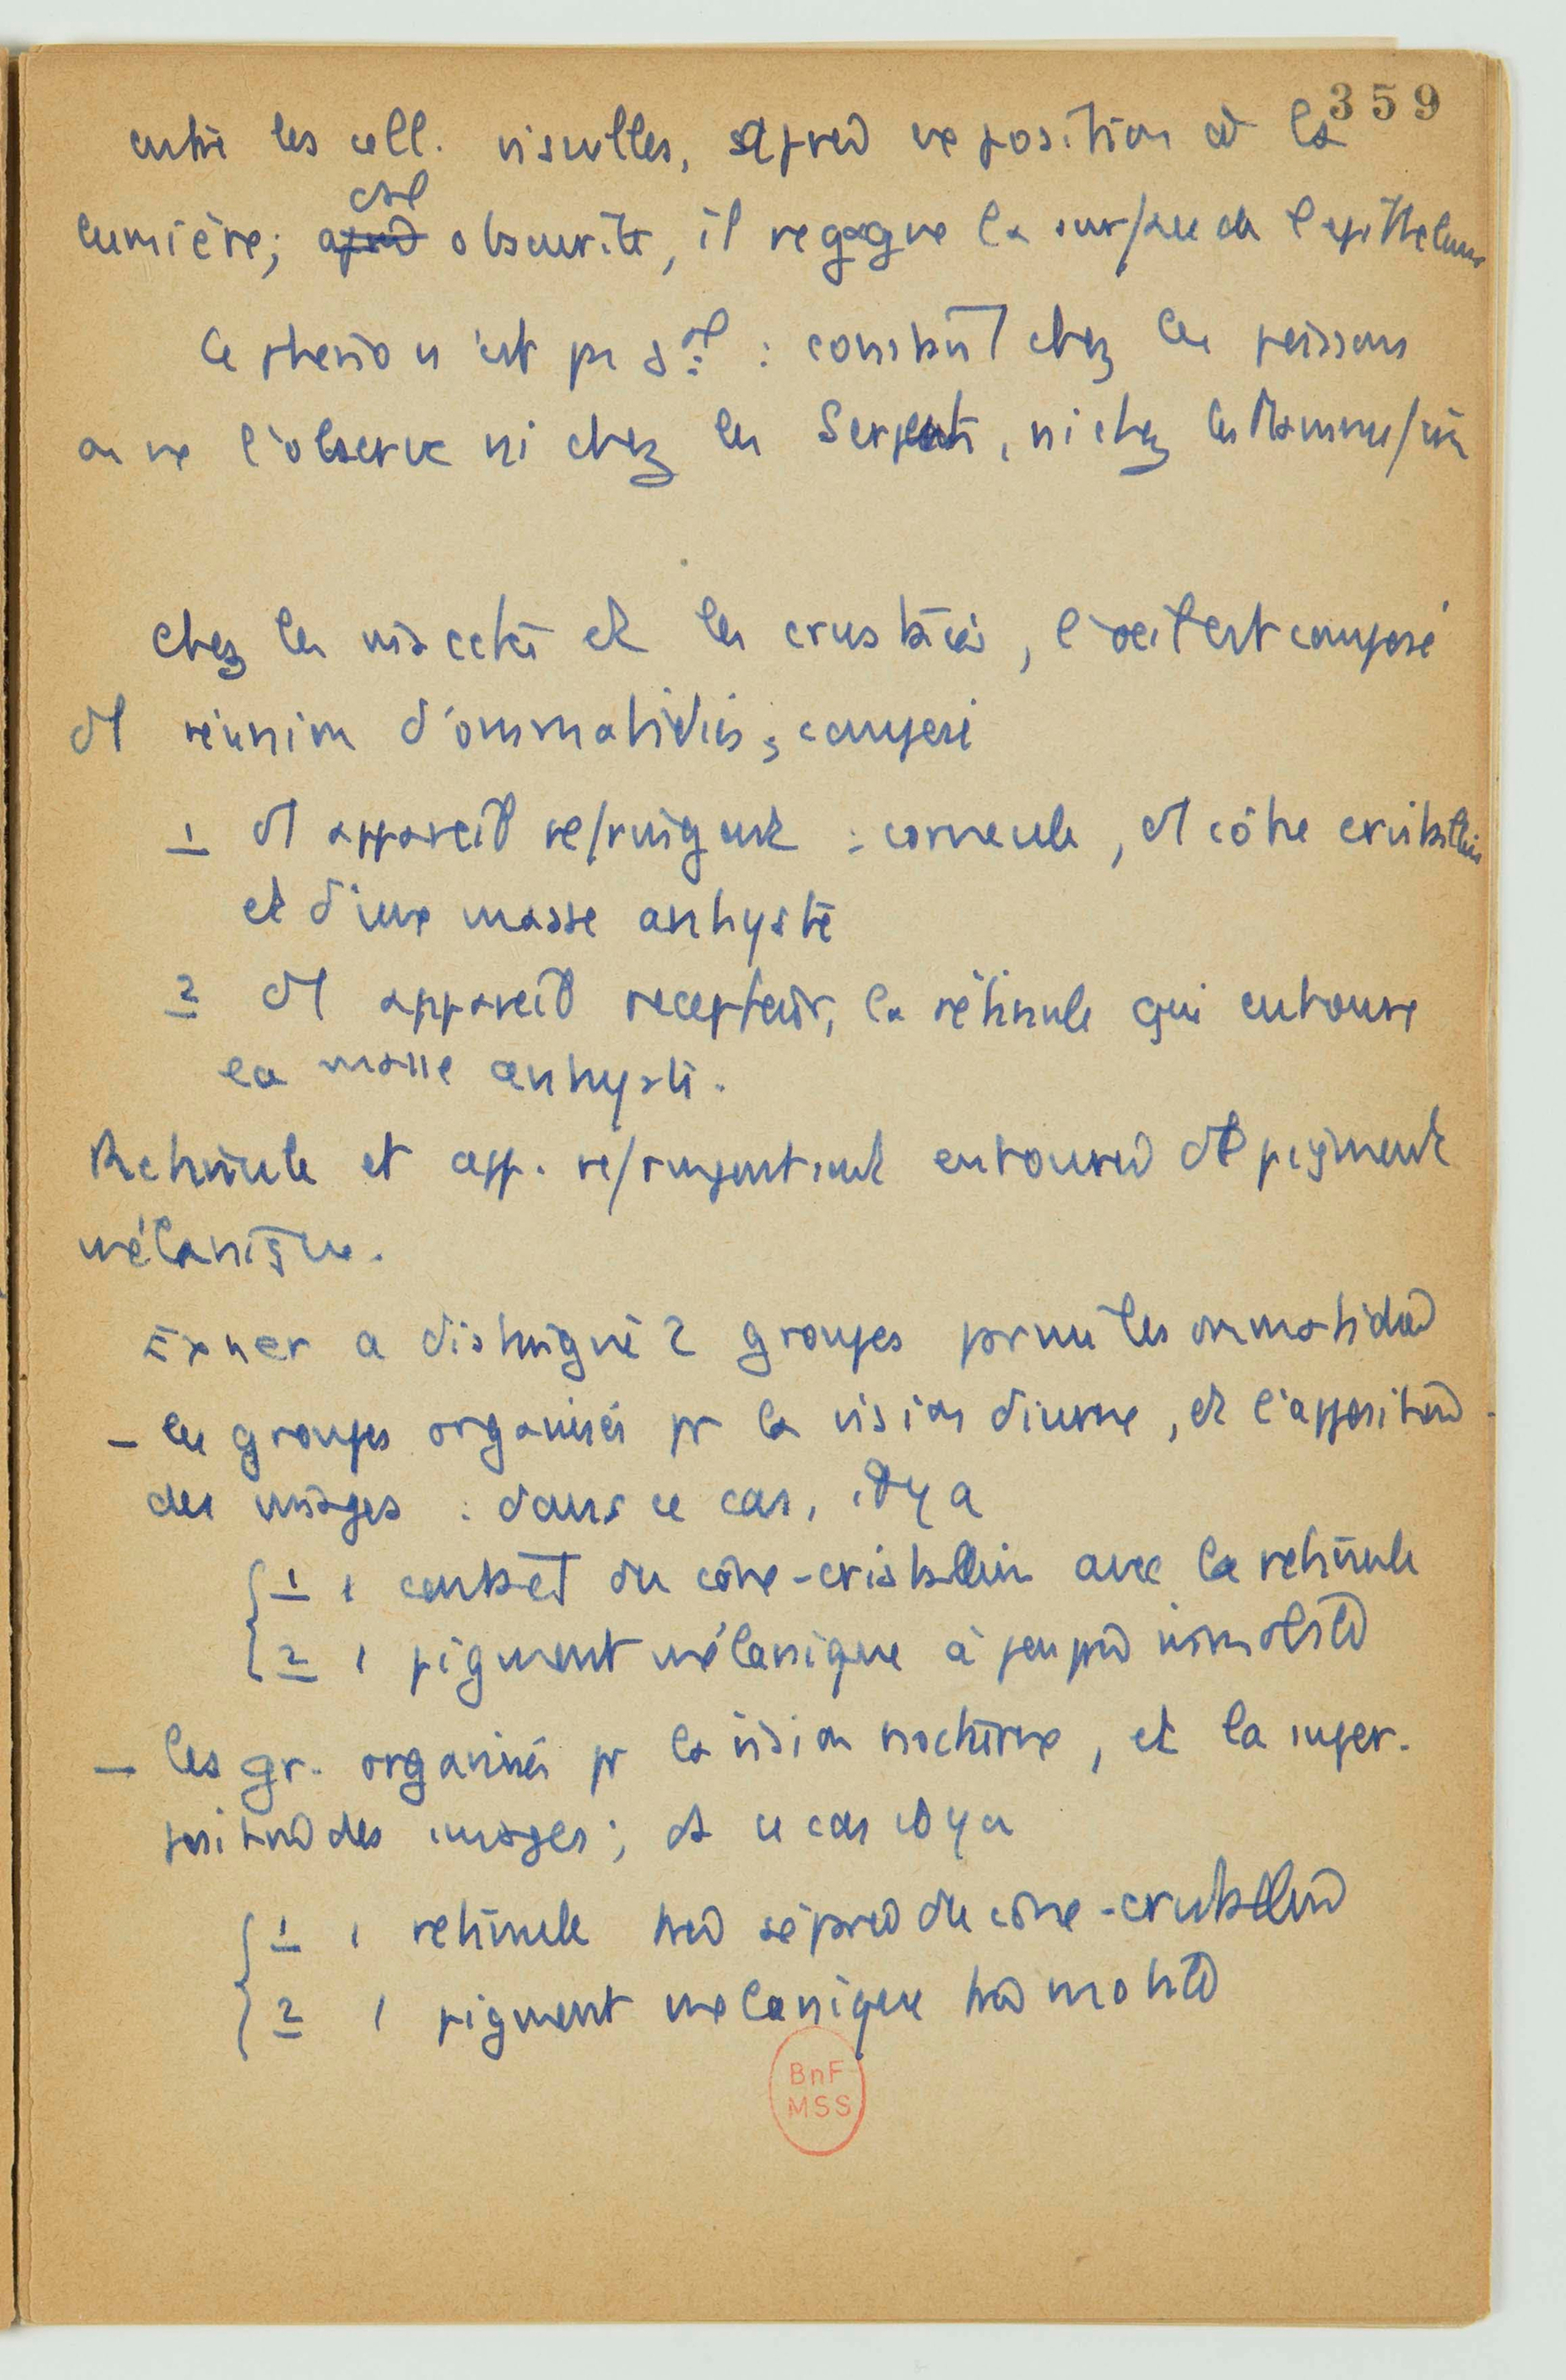 359
entre les cell. visuelles, après exposition à la
lumière; obscurité, il regagne la surface de l'epithelium
Ce phéno n'est pas : constant chez les poissons
on ne l'observe ni chez les Serpents, ni chez les Mammifères
Chez les insectes et les crustacés, l'oeil est composé
d'1 réunion d'ommatidies; composé
1 d'1 appareil refringent : corneule, d'1 cône cristallin
et d'une masse anhyste
2 d'1 appareil recepteur, la rétinule qui entoure
la masse anhyste.
Retinule et app. entourés d'1 pigment
mélanique.
Exner a distingué 2 groupes parmi les ommatidies
- les groupes organisés pr la vision diurne, et l'apposition
des images : dans ce cas, il y a
1 1 contact du cône-cristallin avec la retinule
2 1 pigment mélanique à peu près immobile
- les gr. organisés pr la vision nocturne, et la super-
position des images; ds ce cas il y a
1 1 retinule très séparée du cône-cristallin
2 1 pigment mélanique très mobile
BnF
MSS